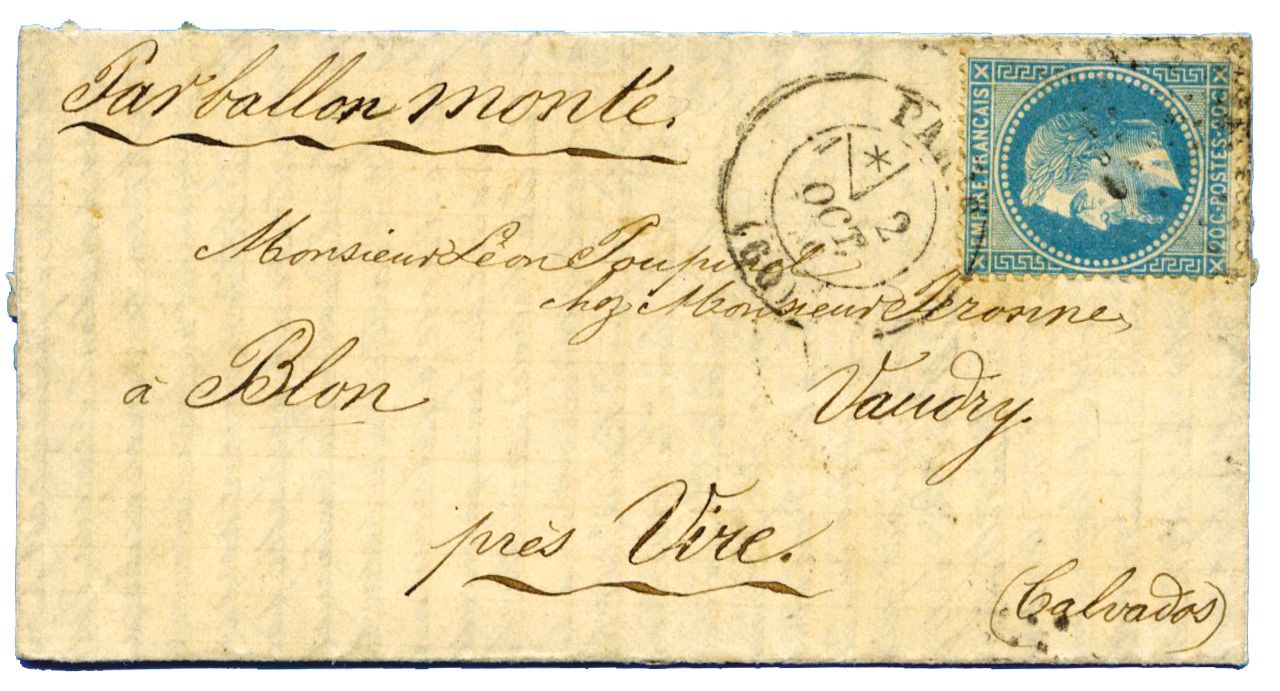 Par ballon monté.
PAR
OCT.
2
(60)
EMPIRE FRANCAIS
20 C POSTES 20 C
Monsieur Léon
chez Monsieur Peronne,
à Blon Vaudry.
près Vire.
(Calvados)